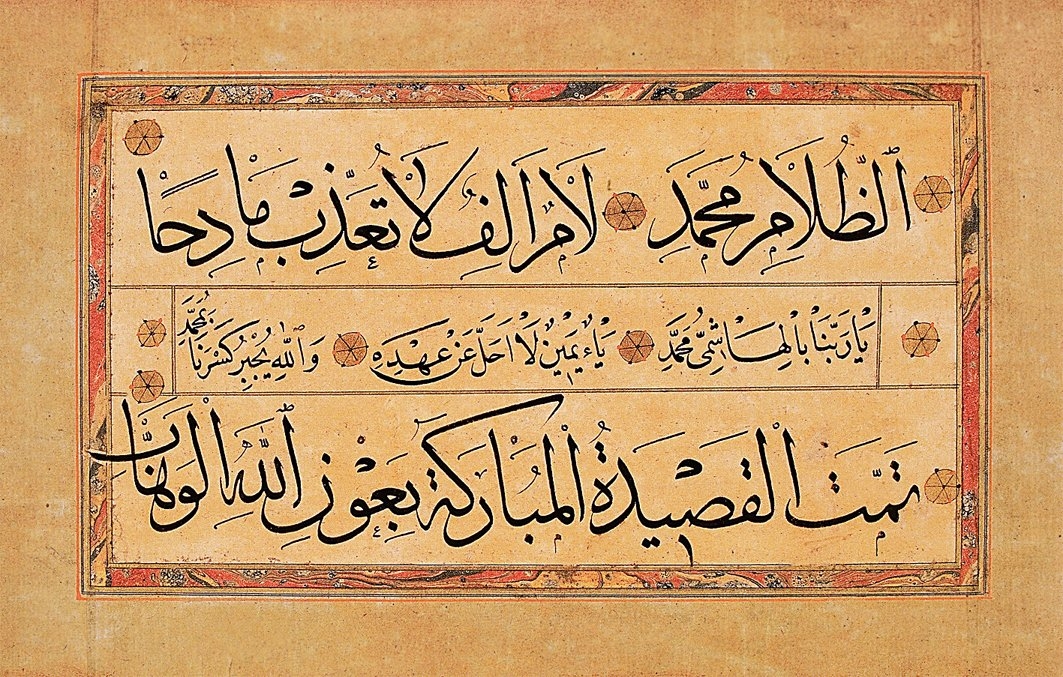 اَلظُّلَامِ مُحَمَّدَ لَامُ اَلِفُ لَا تُعَذِّبْ مَادِحًا
يَا رَبَّنَا بِالْهَاشِمِيِّ مُحَمَّدَ يَاءُ يَمِينُ لَا اَحَلَّ عَنْ عَهْدِهِ وَاللّٰهِ يُجْبِرُ كَسْرَنَا بِمُحَمَّدَ
تَمَّتَ الْقَصِيدَةُ الْمُبَارَكَةُ بِعَوْنِ اللّٰهِ الْوَهَّابِ